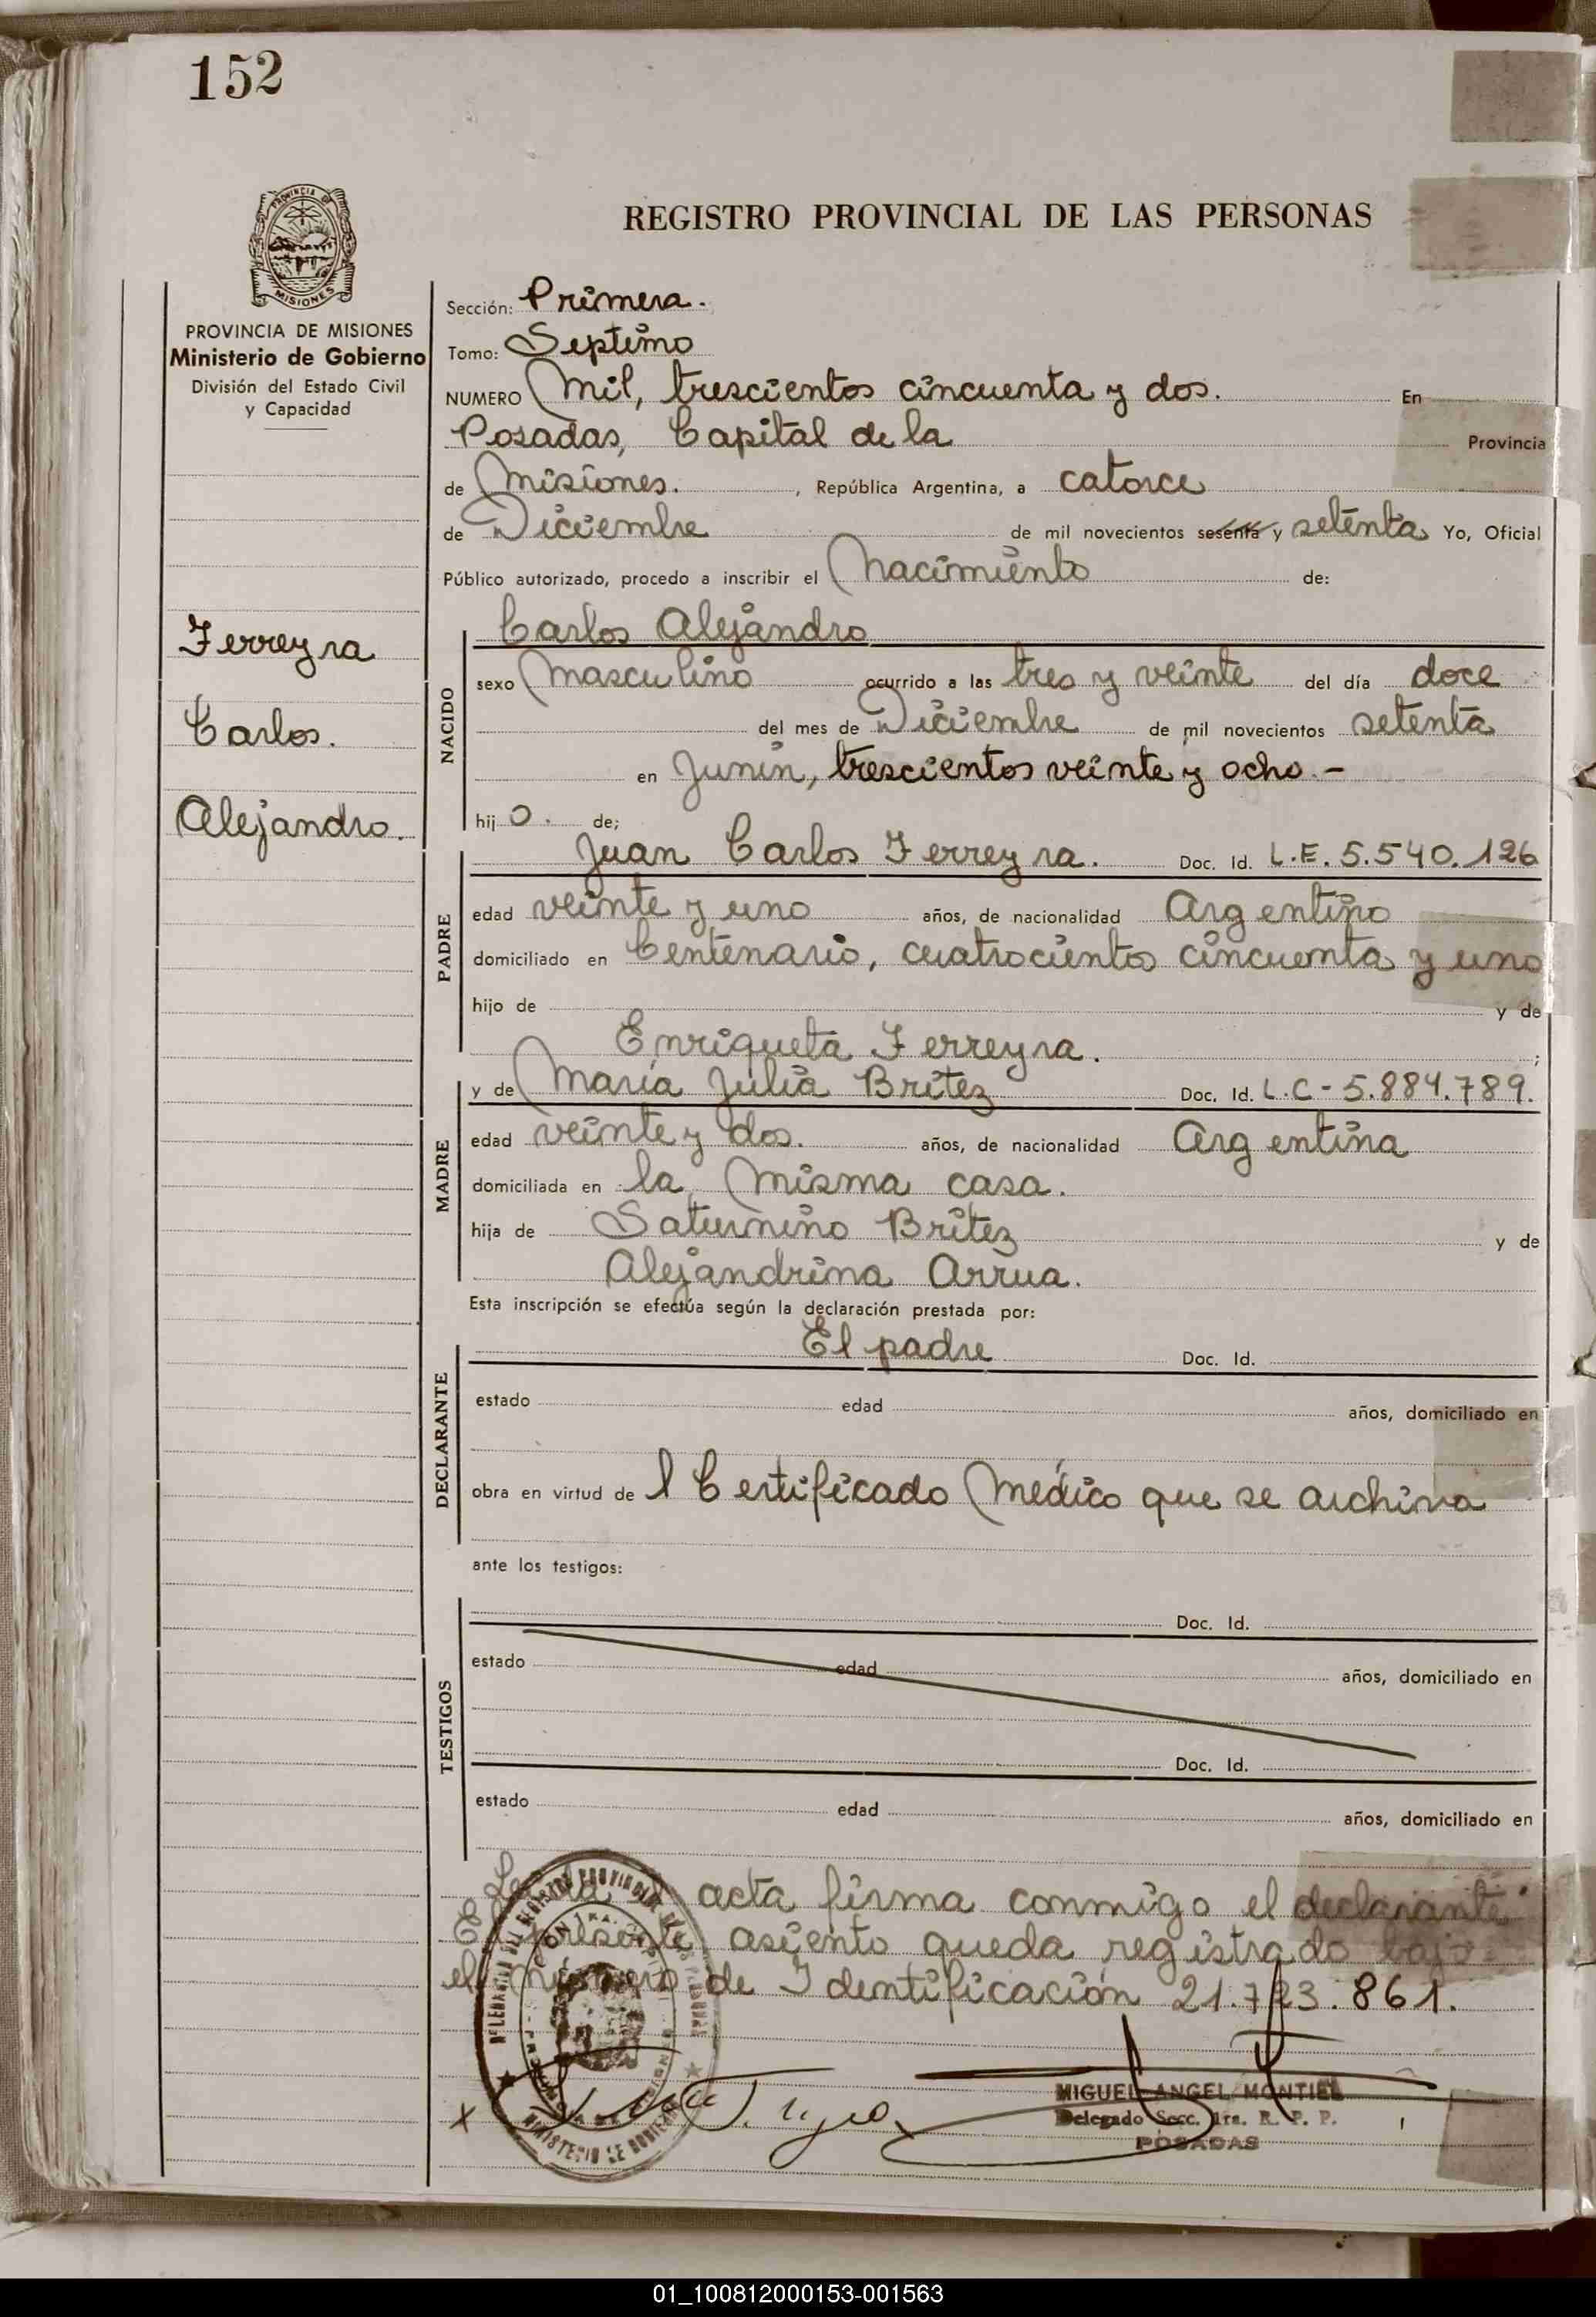 152
PROVINCIA DE
MISIONES
PROVINCIA DE MISIONES
Ministerio de Gobierno
División del Estado Civil
y Capacidad
Ferreyra
Carlos.
Alejandro.
REGISTRO PROVINCIAL DE LAS PERSONAS
Sección: Primera.
Tomo: Septimo
NUMERO Mil, trescientos cincuenta y dos. En
Posadas, Capital de la Provincia
de Misiones. , República Argentina, a catorce
de Diciembre de mil novecientos sesenta y setenta Yo, Oficial
Público autorizado, procedo a inscribir el Nacimiento de:
NACIDO
Carlos Alejandro
sexo Masculino ocurrido a las tres y veinte del día doce
del mes de Diciembre de mil novecientos setenta
en Junín, trescientos veinte y ocho.-
hij o. de;
PADRE
Juan Carlos Ferreyra. Doc. Id. L.E. 5.540.126
edad veinte y uno años, de nacionalidad Argentino
domiciliado en Centenario, cuatrocientos cincuenta y uno
hijo de y de
Enriqueta Ferreyra. ;
MADRE
y de María Julia Britez Doc. Id. L.C- 5.884.789.
edad veinte y dos. años, de nacionalidad Argentina
domiciliada en la misma casa.
hija de Saturnino Britez y de
Alejandrina Arrua.
Esta inscripción se efectúa según la declaración prestada por:
DECLARANTE
El padre Doc. Id.
estado edad años, domiciliado en
obra en virtud de l Certificado Médico que se archiva
ante los testigos:
TESTIGOS
Doc. Id.
estado edad años, domiciliado en
Doc. Id.
estado edad años, domiciliado en
acta firma conmigo el declarante
El presente asiento queda registrado bajo
el número de Identificación 21.723.861.
MIGUEL ANGEL MONTIEL
Delegado Secc. 1ra. R. P. P.
POSADAS
01_100812000153-001563